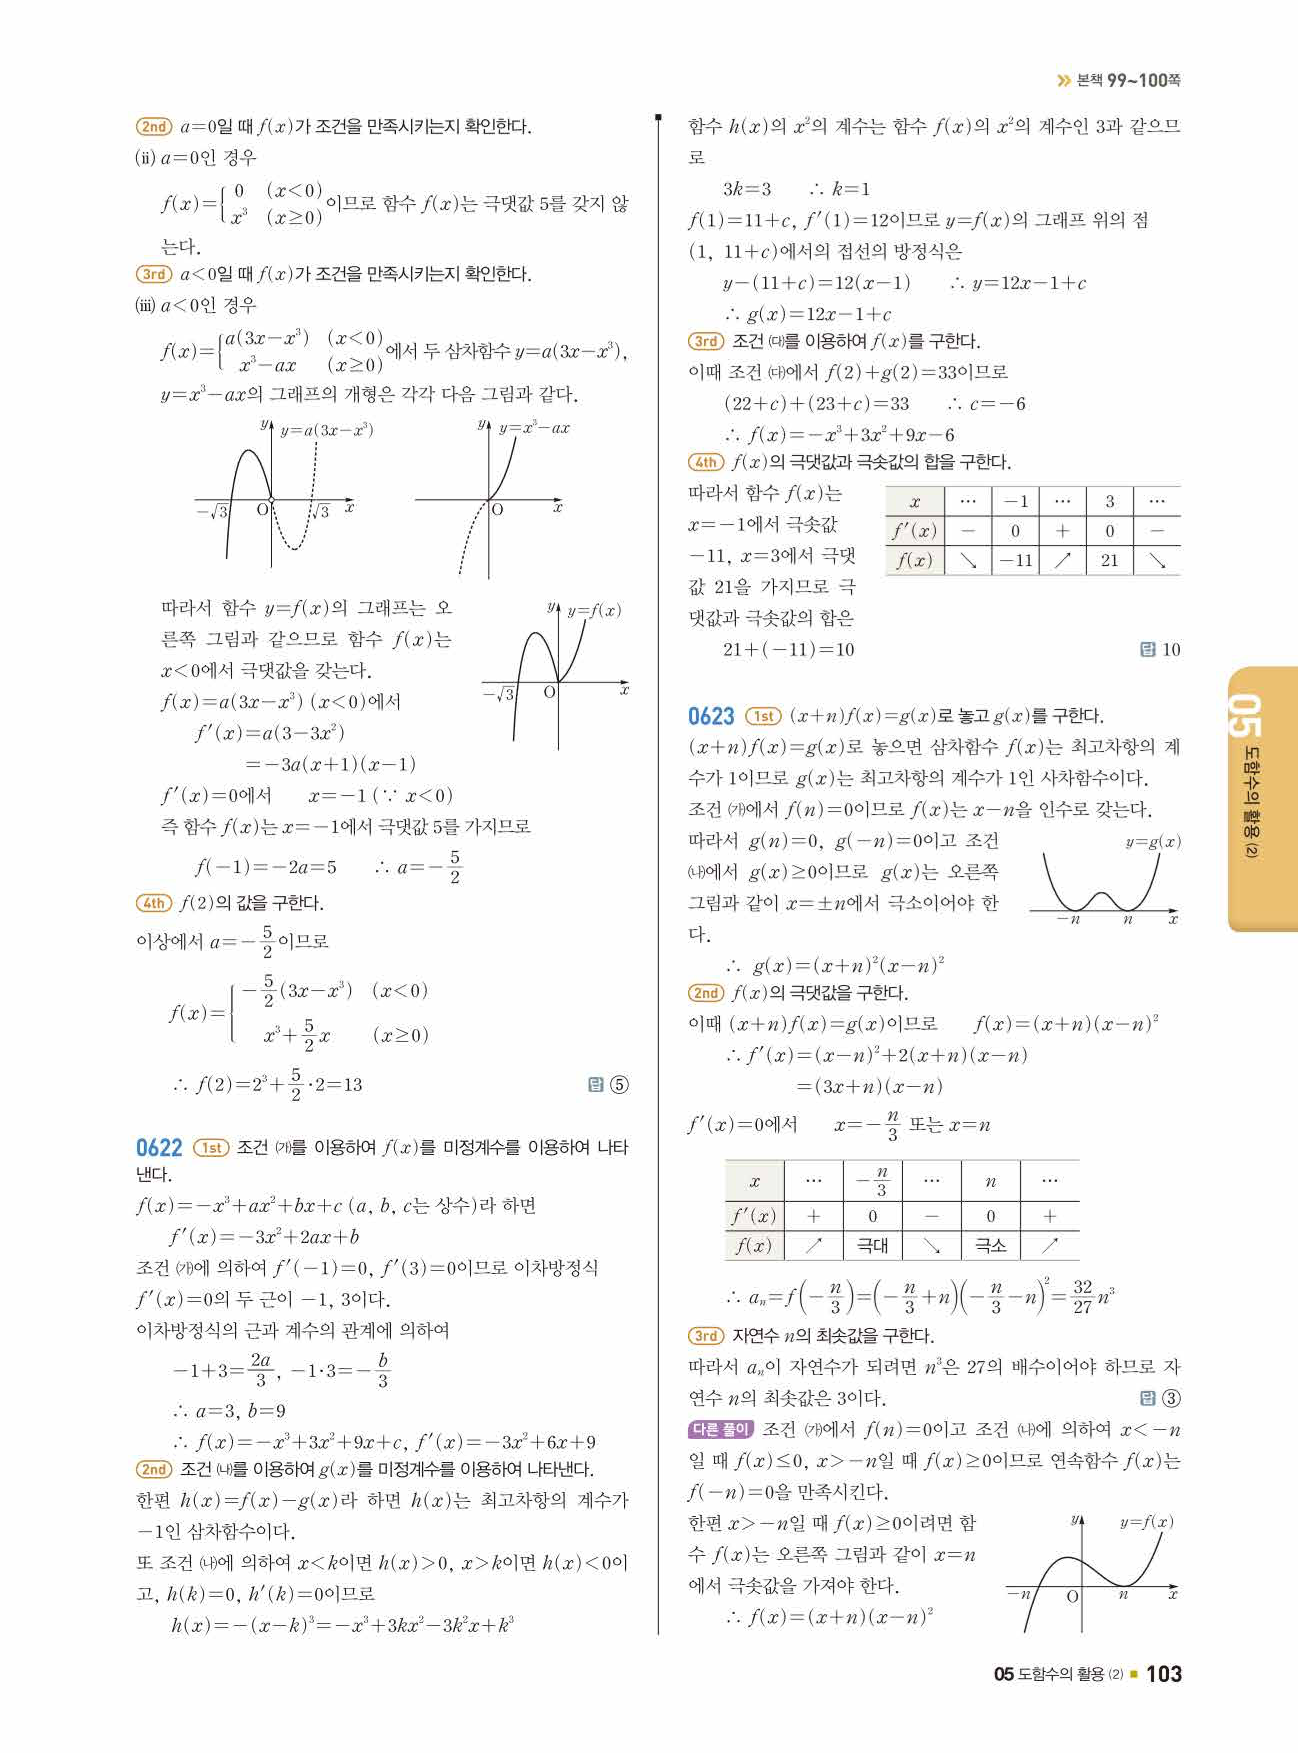 본책 99~100쪽
2nd a=0일 때 f(x)가 조건을 만족시키는지 확인한다.
(ⅱ) a=0인 경우
f(x)={ 0 (x<0)
x³ (x≥0) 이므로 함수 f(x)는 극댓값 5를 갖지 않
는다.
3rd a<0일 때 f(x)가 조건을 만족시키는지 확인한다.
(ⅲ) a<0인 경우
f(x)={ a(3x-x³) (x<0)
x³-ax (x≥0) 에서 두 삼차함수 y=a(3x-x³),
y=x³-ax의 그래프의 개형은 각각 다음 그림과 같다.
y y=a(3x-x³)
-√3 O √3 x
y y=x³-ax
O x
따라서 함수 y=f(x)의 그래프는 오
른쪽 그림과 같으므로 함수 f(x)는
x<0에서 극댓값을 갖는다.
y y=f(x)
-√3 O x
f(x)=a(3x-x³) (x<0)에서
f′(x)=a(3-3x²)
=-3a(x+1)(x-1)
f′(x)=0에서 x=-1 (∵ x<0)
즉 함수 f(x)는 x=-1에서 극댓값 5를 가지므로
f(-1)=-2a=5 ∴ a=-5/2
4th f(2)의 값을 구한다.
이상에서 a=-5/2이므로
f(x)={ -5/2(3x-x³) (x<0)
x³+5/2x (x≥0)
∴ f(2)=2³+5/2·2=13 답 ⑤
0622 1st 조건 ㈎를 이용하여 f(x)를 미정계수를 이용하여 나타
낸다.
f(x)=-x³+ax²+bx+c (a, b, c는 상수)라 하면
f′(x)=-3x²+2ax+b
조건 ㈎에 의하여 f′(-1)=0, f′(3)=0이므로 이차방정식
f′(x)=0의 두 근이 -1, 3이다.
이차방정식의 근과 계수의 관계에 의하여
-1+3=2a/3, -1·3=-b/3
∴ a=3, b=9
∴ f(x)=-x³+3x²+9x+c, f′(x)=-3x²+6x+9
2nd 조건 ㈏를 이용하여 g(x)를 미정계수를 이용하여 나타낸다.
한편 h(x)=f(x)-g(x)라 하면 h(x)는 최고차항의 계수가
-1인 삼차함수이다.
또 조건 ㈏에 의하여 x<k이면 h(x)>0, x>k이면 h(x)<0이
고, h(k)=0, h′(k)=0이므로
h(x)=-(x-k)³=-x³+3kx²-3k²x+k³
함수 h(x)의 x²의 계수는 함수 f(x)의 x²의 계수인 3과 같으므
로
3k=3 ∴ k=1
f(1)=11+c, f′(1)=12이므로 y=f(x)의 그래프 위의 점
(1, 11+c)에서의 접선의 방정식은
y-(11+c)=12(x-1) ∴ y=12x-1+c
∴ g(x)=12x-1+c
3rd 조건 ㈐를 이용하여 f(x)를 구한다.
이때 조건 ㈐에서 f(2)+g(2)=33이므로
(22+c)+(23+c)=33 ∴ c=-6
∴ f(x)=-x³+3x²+9x-6
4th f(x)의 극댓값과 극솟값의 합을 구한다.
따라서 함수 f(x)는
x=-1에서 극솟값
-11, x=3에서 극댓
값 21을 가지므로 극
댓값과 극솟값의 합은
x … -1 … 3 …
f′(x) - 0 + 0 -
f(x) ↘ -11 ↗ 21 ↘
21+(-11)=10 답 10
0623 1st (x+n)f(x)=g(x)로 놓고 g(x)를 구한다.
(x+n)f(x)=g(x)로 놓으면 삼차함수 f(x)는 최고차항의 계
수가 1이므로 g(x)는 최고차항의 계수가 1인 사차함수이다.
조건 ㈎에서 f(n)=0이므로 f(x)는 x-n을 인수로 갖는다.
따라서 g(n)=0, g(-n)=0이고 조건
㈏에서 g(x)≥0이므로 g(x)는 오른쪽
그림과 같이 x=±n에서 극소이어야 한
다.
y=g(x)
-n n x
∴ g(x)=(x+n)²(x-n)²
2nd f(x)의 극댓값을 구한다.
이때 (x+n)f(x)=g(x)이므로 f(x)=(x+n)(x-n)²
∴ f′(x)=(x-n)²+2(x+n)(x-n)
=(3x+n)(x-n)
f′(x)=0에서 x=-n/3 또는 x=n
x … -n/3 … n …
f′(x) + 0 - 0 +
f(x) ↗ 극대 ↘ 극소 ↗
∴ aₙ=f(-n/3)=(-n/3+n)(-n/3-n)²=32/27n³
3rd 자연수 n의 최솟값을 구한다.
따라서 aₙ이 자연수가 되려면 n³은 27의 배수이어야 하므로 자
연수 n의 최솟값은 3이다. 답 ③
다른 풀이 조건 ㈎에서 f(n)=0이고 조건 ㈏에 의하여 x<-n
일 때 f(x)≤0, x>-n일 때 f(x)≥0이므로 연속함수 f(x)는
f(-n)=0을 만족시킨다.
한편 x>-n일 때 f(x)≥0이려면 함
수 f(x)는 오른쪽 그림과 같이 x=n
에서 극솟값을 가져야 한다.
∴ f(x)=(x+n)(x-n)²
y y=f(x)
-n O n x
05 도함수의 활용 (2)
05 도함수의 활용 (2) 103